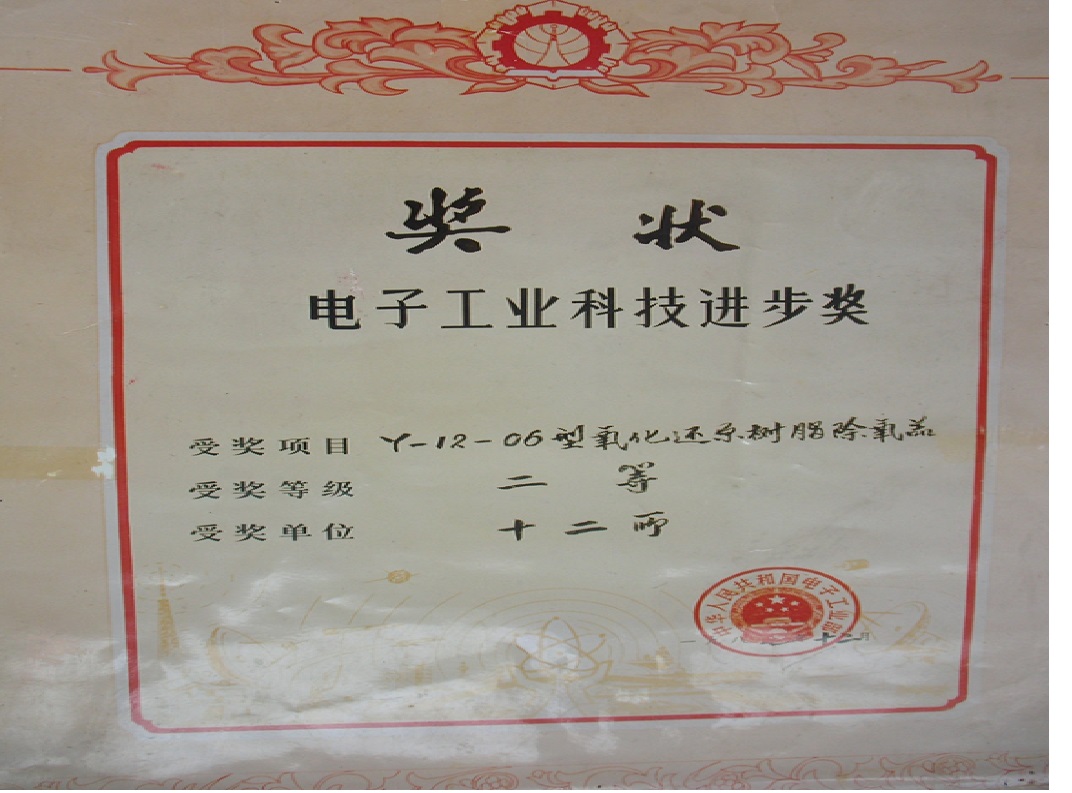 奖 状
电子工业科技进步奖
受奖项目 Y-12-06型氧化还原树脂除氧器
受奖等级 二 等
受奖单位 十二所
中华人民共和国电子工业部
十二月